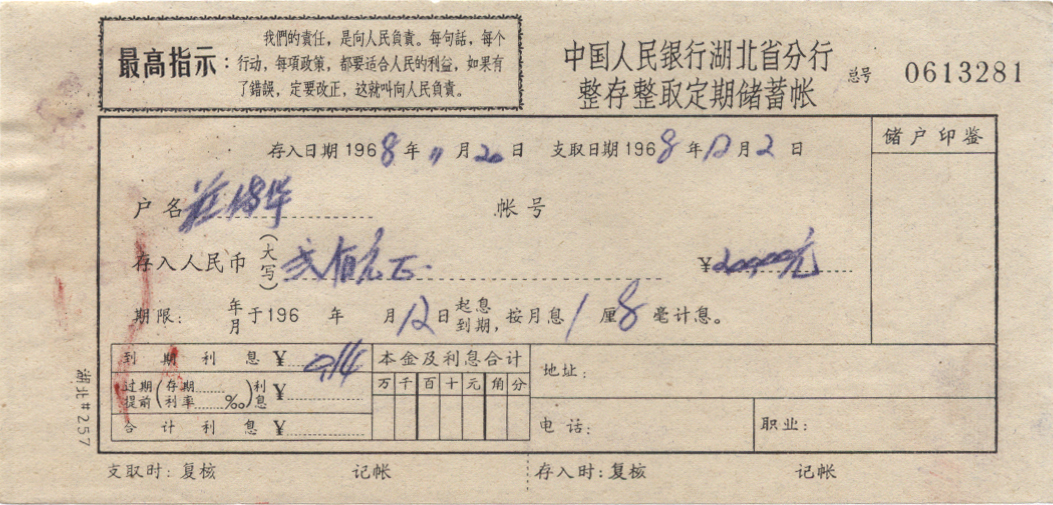 最高指示：
我們的責任，是向人民負責。每句話，每个
行动，每項政策，都要适合人民的利益，如果有
了錯誤，定要改正，这就叫向人民負責。
中国人民银行湖北省分行
整存整取定期储蓄帐
总号 0613281
存入日期 1968年11月20日 支取日期 1968年12月2日
储户印鉴
户名 华 帐号
存入人民币（大写）贰佰元正. ¥200.00元
期限：年月于196 年 月12日起息到期，按月息1厘8毫计息。
到期利息¥0.14
本金及利息合计
万千百十元角分
过期提前（存期利率 ‰）利息¥
合计利息¥
地址：
电话：
职业：
支取时：复核 记帐 存入时：复核 记帐
湖北#257